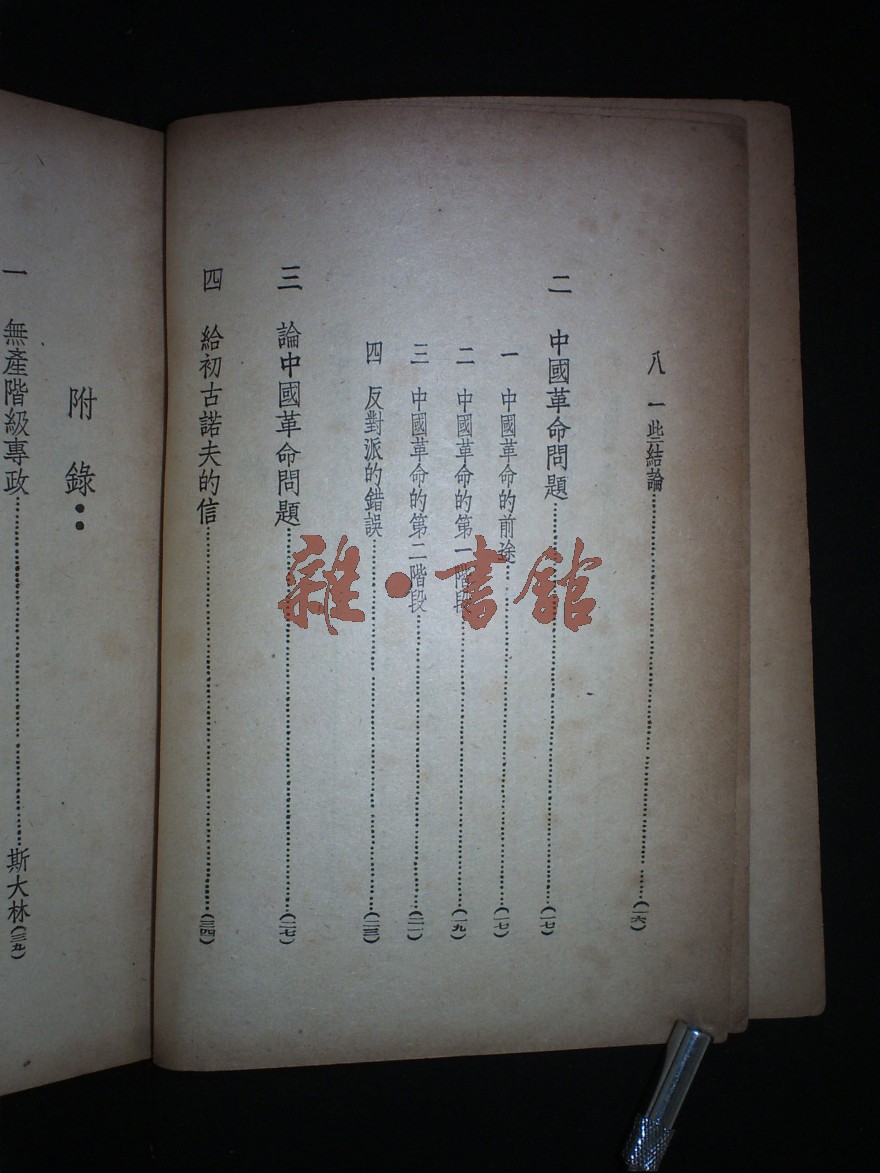 八 一些結論……(一六)
二 中國革命問題……(一七)
一 中國革命的前途……(一七)
二 中國革命的第一階段……(一九)
三 中國革命的第二階段……(二一)
四 反對派的錯誤……(二三)
三 論中國革命問題……(二七)
四 給初古諾夫的信……(三四)
附錄：
一 無產階級專政……斯大林(三九)
雜·書館